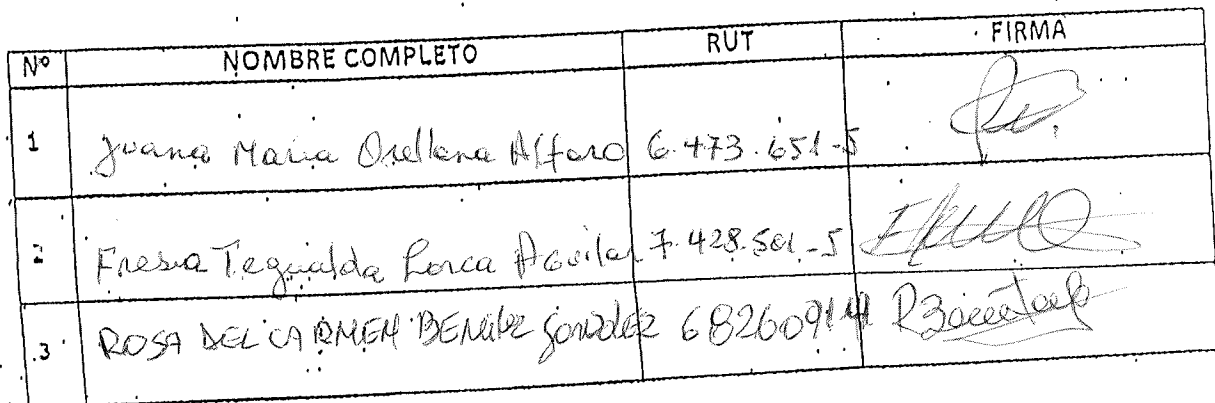 Nº NOMBRE COMPLETO RUT FIRMA
1 Juana Maria Orellana Alfaro 6.473.651-5
2 Fresia Tegualda Lorca Aguilar 7.428.501-5
3 ROSA DEL CARMEN BENitez gonzalez